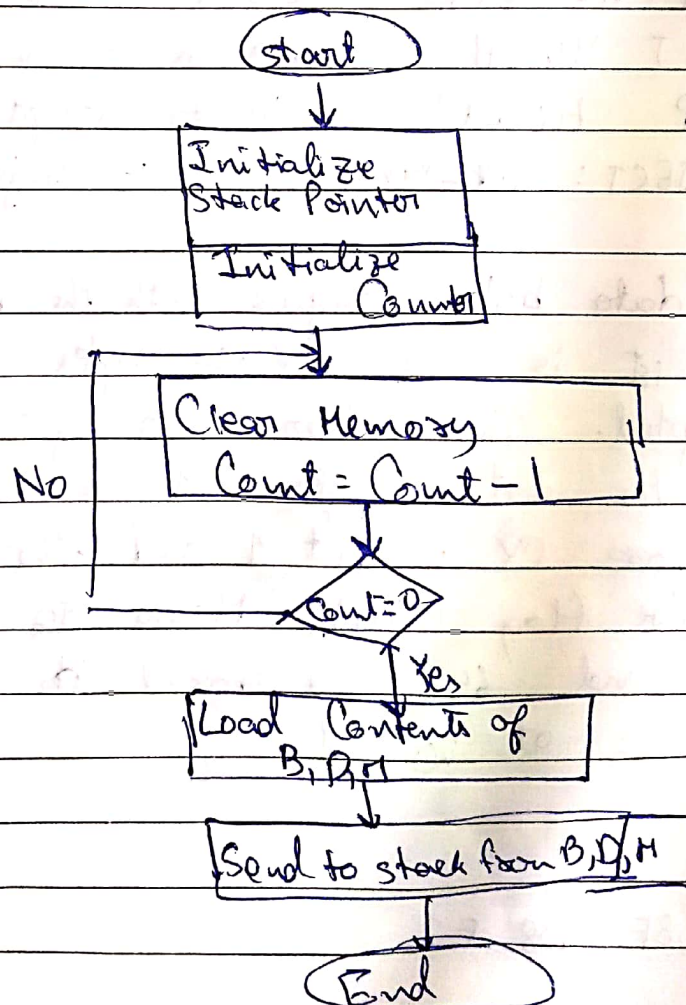 start
Initialize
Stack Pointer
Initialize
Counter
Clear Memory
Count = Count - 1
No
Count=0
Yes
Load Contents of
B, D, H
Send to stack from B, D, H
End